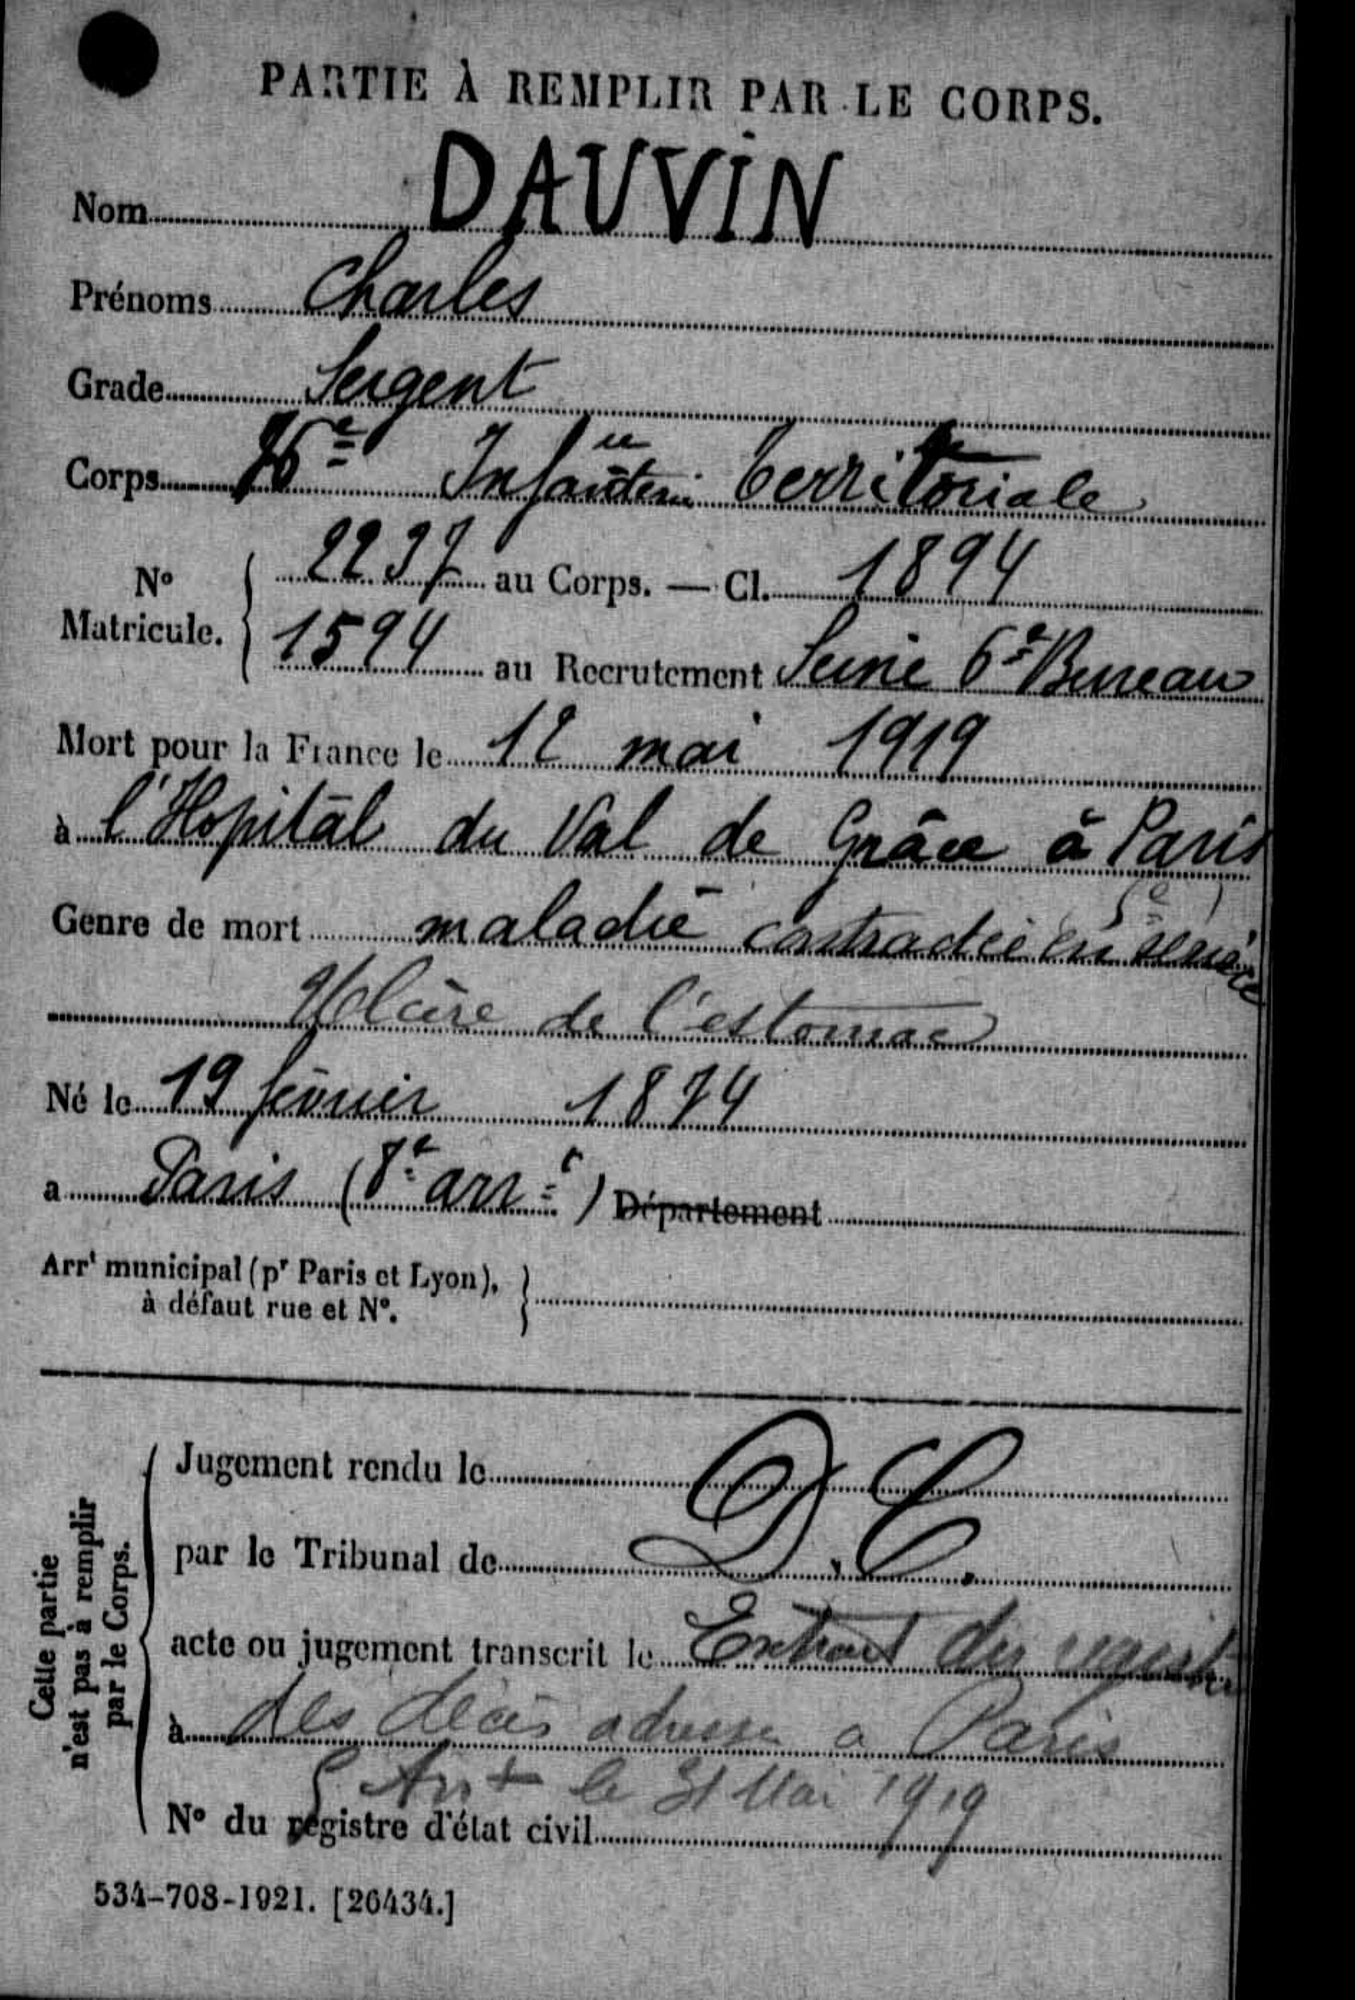 PARTIE À REMPLIR PAR LE CORPS.
Nom DAUVIN
Prénoms Charles
Grade Sergent
Corps 76e Infanterie Territoriale
N° Matricule. 2237 au Corps. — Cl. 1894
1594 au Recrutement Seine 6e Bureau
Mort pour la France le 12 mai 1919
à l'Hopital du Val de Grâce à Paris
(5e)
Genre de mort maladie contractée en service
Ulcère de l'estomac
Né le 19 février 1874
a Paris (8e arrt) Département
Arrt municipal (pr Paris et Lyon),
à défaut rue et N°.
Cette partie
n'est pas à remplir
par le Corps.
Jugement rendu le
par le Tribunal de D.C.
acte ou jugement transcrit le Extrait du registre
à des décès adresse a Paris
5 Arrt le 31 Mai 1919
N° du registre d'état civil
534-708-1921. [26434.]